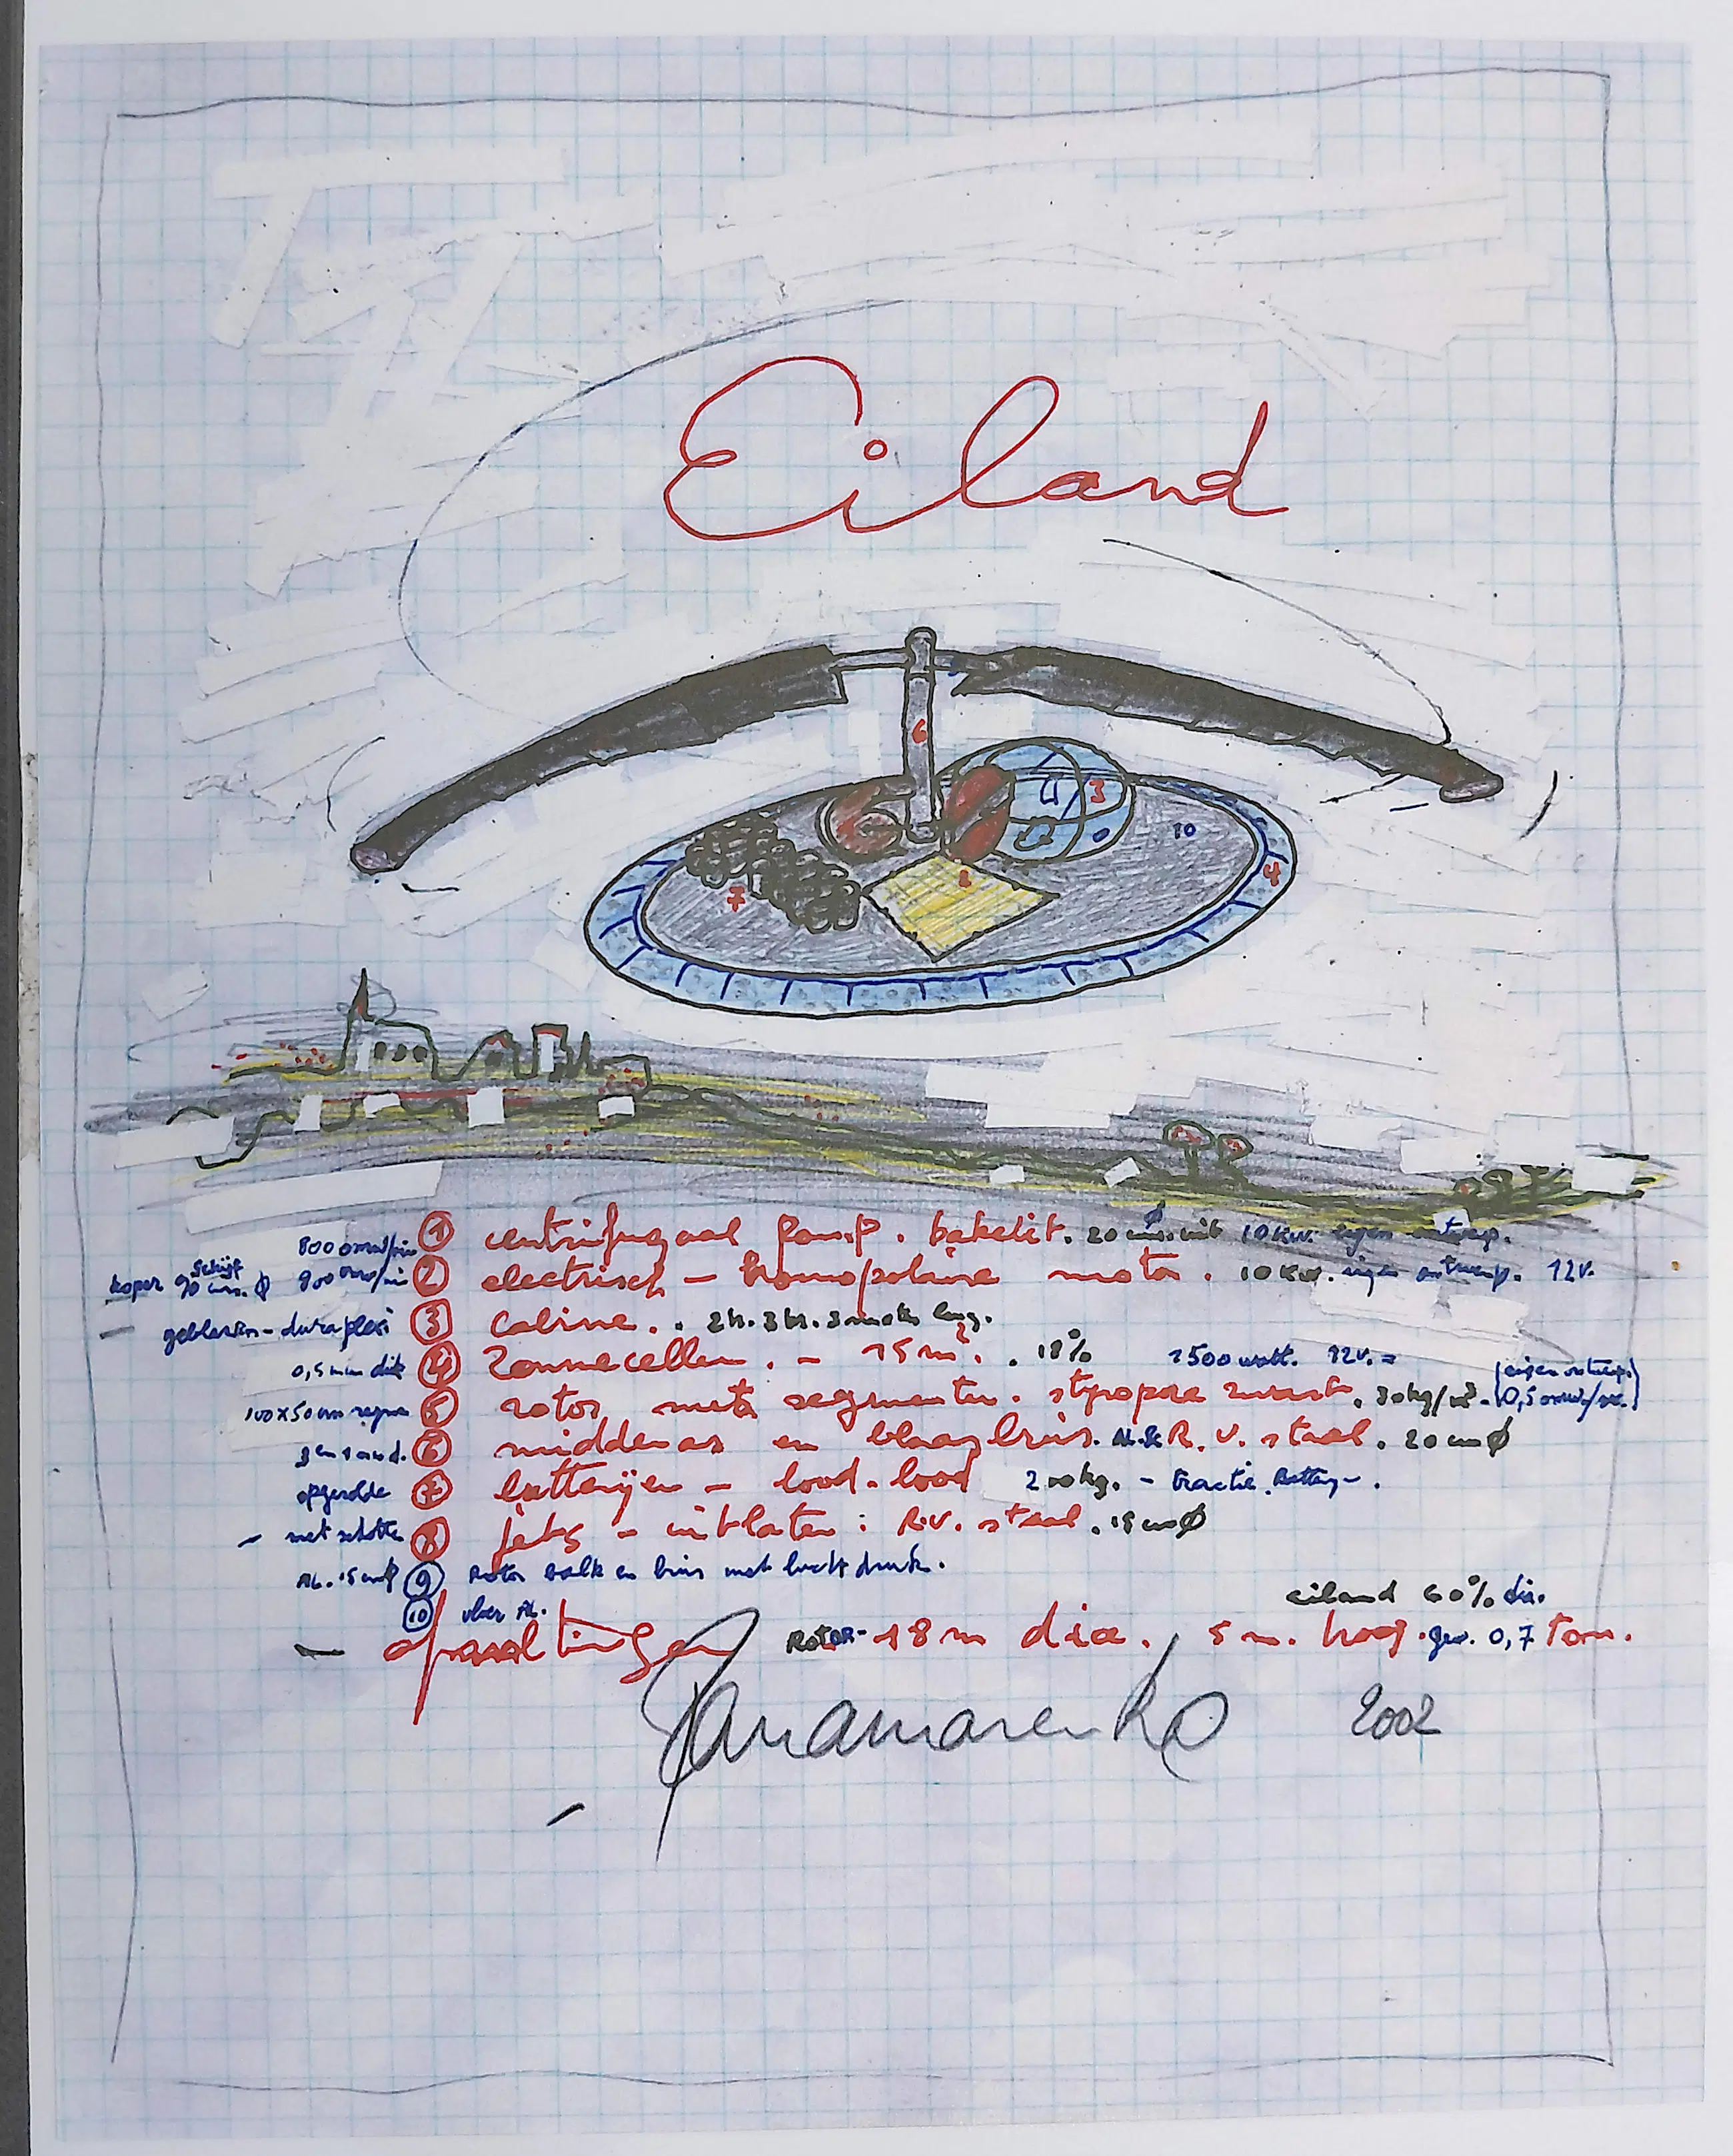 Eiland
6
3
10
4
7
1
800 omw/min ① centrifugaal pomp. bakeliet. 20 cm. uit 10 Kw. eigen ontwerp.
koper schijf 90 cm. ϕ 900 omw/min ② electrisch - homopolaire motor. 10 Kw. eigen ontwerp. 12v.
geblazen - duraplexi ③ cabine. . 2 h. 3 m lang.
0,5 mm dik ④ Zonnecellen. - 15 m². . 18% 1500 watt. 12v. =
100 x 50 cm ⑤ rotor met segmenten. styropore zwart. 30 kg/m³. (eigen ontwerp. 0,5 omw/sec.)
⑥ middenas en blaasbuis. R.V. staal. 20 cm ϕ
opgerolde ⑦ batterijen - lood-lood 200 kg. - tractie. Battery.
- met schotten ⑧ jets - uitlaten : R.V. staal. 15 cm ϕ
AL. 15 cm ϕ ⑨ Rotor balk en buis met luchtdruk.
⑩ vloer AL.
eiland 60% dia.
- afmetingen ROTOR - 18 m dia. 5 m. hoog. gew. 0,7 Ton.
Panamarenko 2002